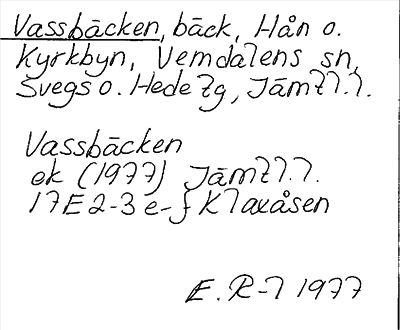 Vassbäcken, bäck, Hån o.
Kyrkbyn, Vemdalens sn,
Svegs o. Hede tg, Jämtl.l.
Vassbäcken
ek (1977) Jämtl.l.
17E 2-3 e-f Klaxåsen
E. R-l 1977